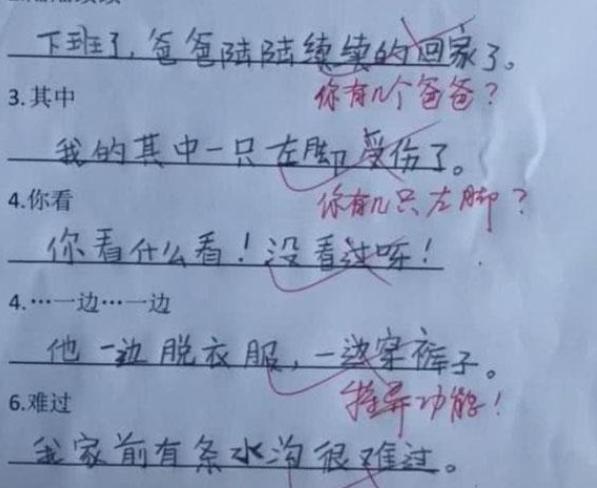 下班了，爸爸陆陆续续的回家了。
你有几个爸爸？
3.其中
我的其中一只左脚受伤了。
你有几只左脚？
4.你看
你看什么看！没看过呀！
4.…一边…一边
他一边脱衣服，一边穿裤子。
特异功能！
6.难过
我家前有条水沟很难过。